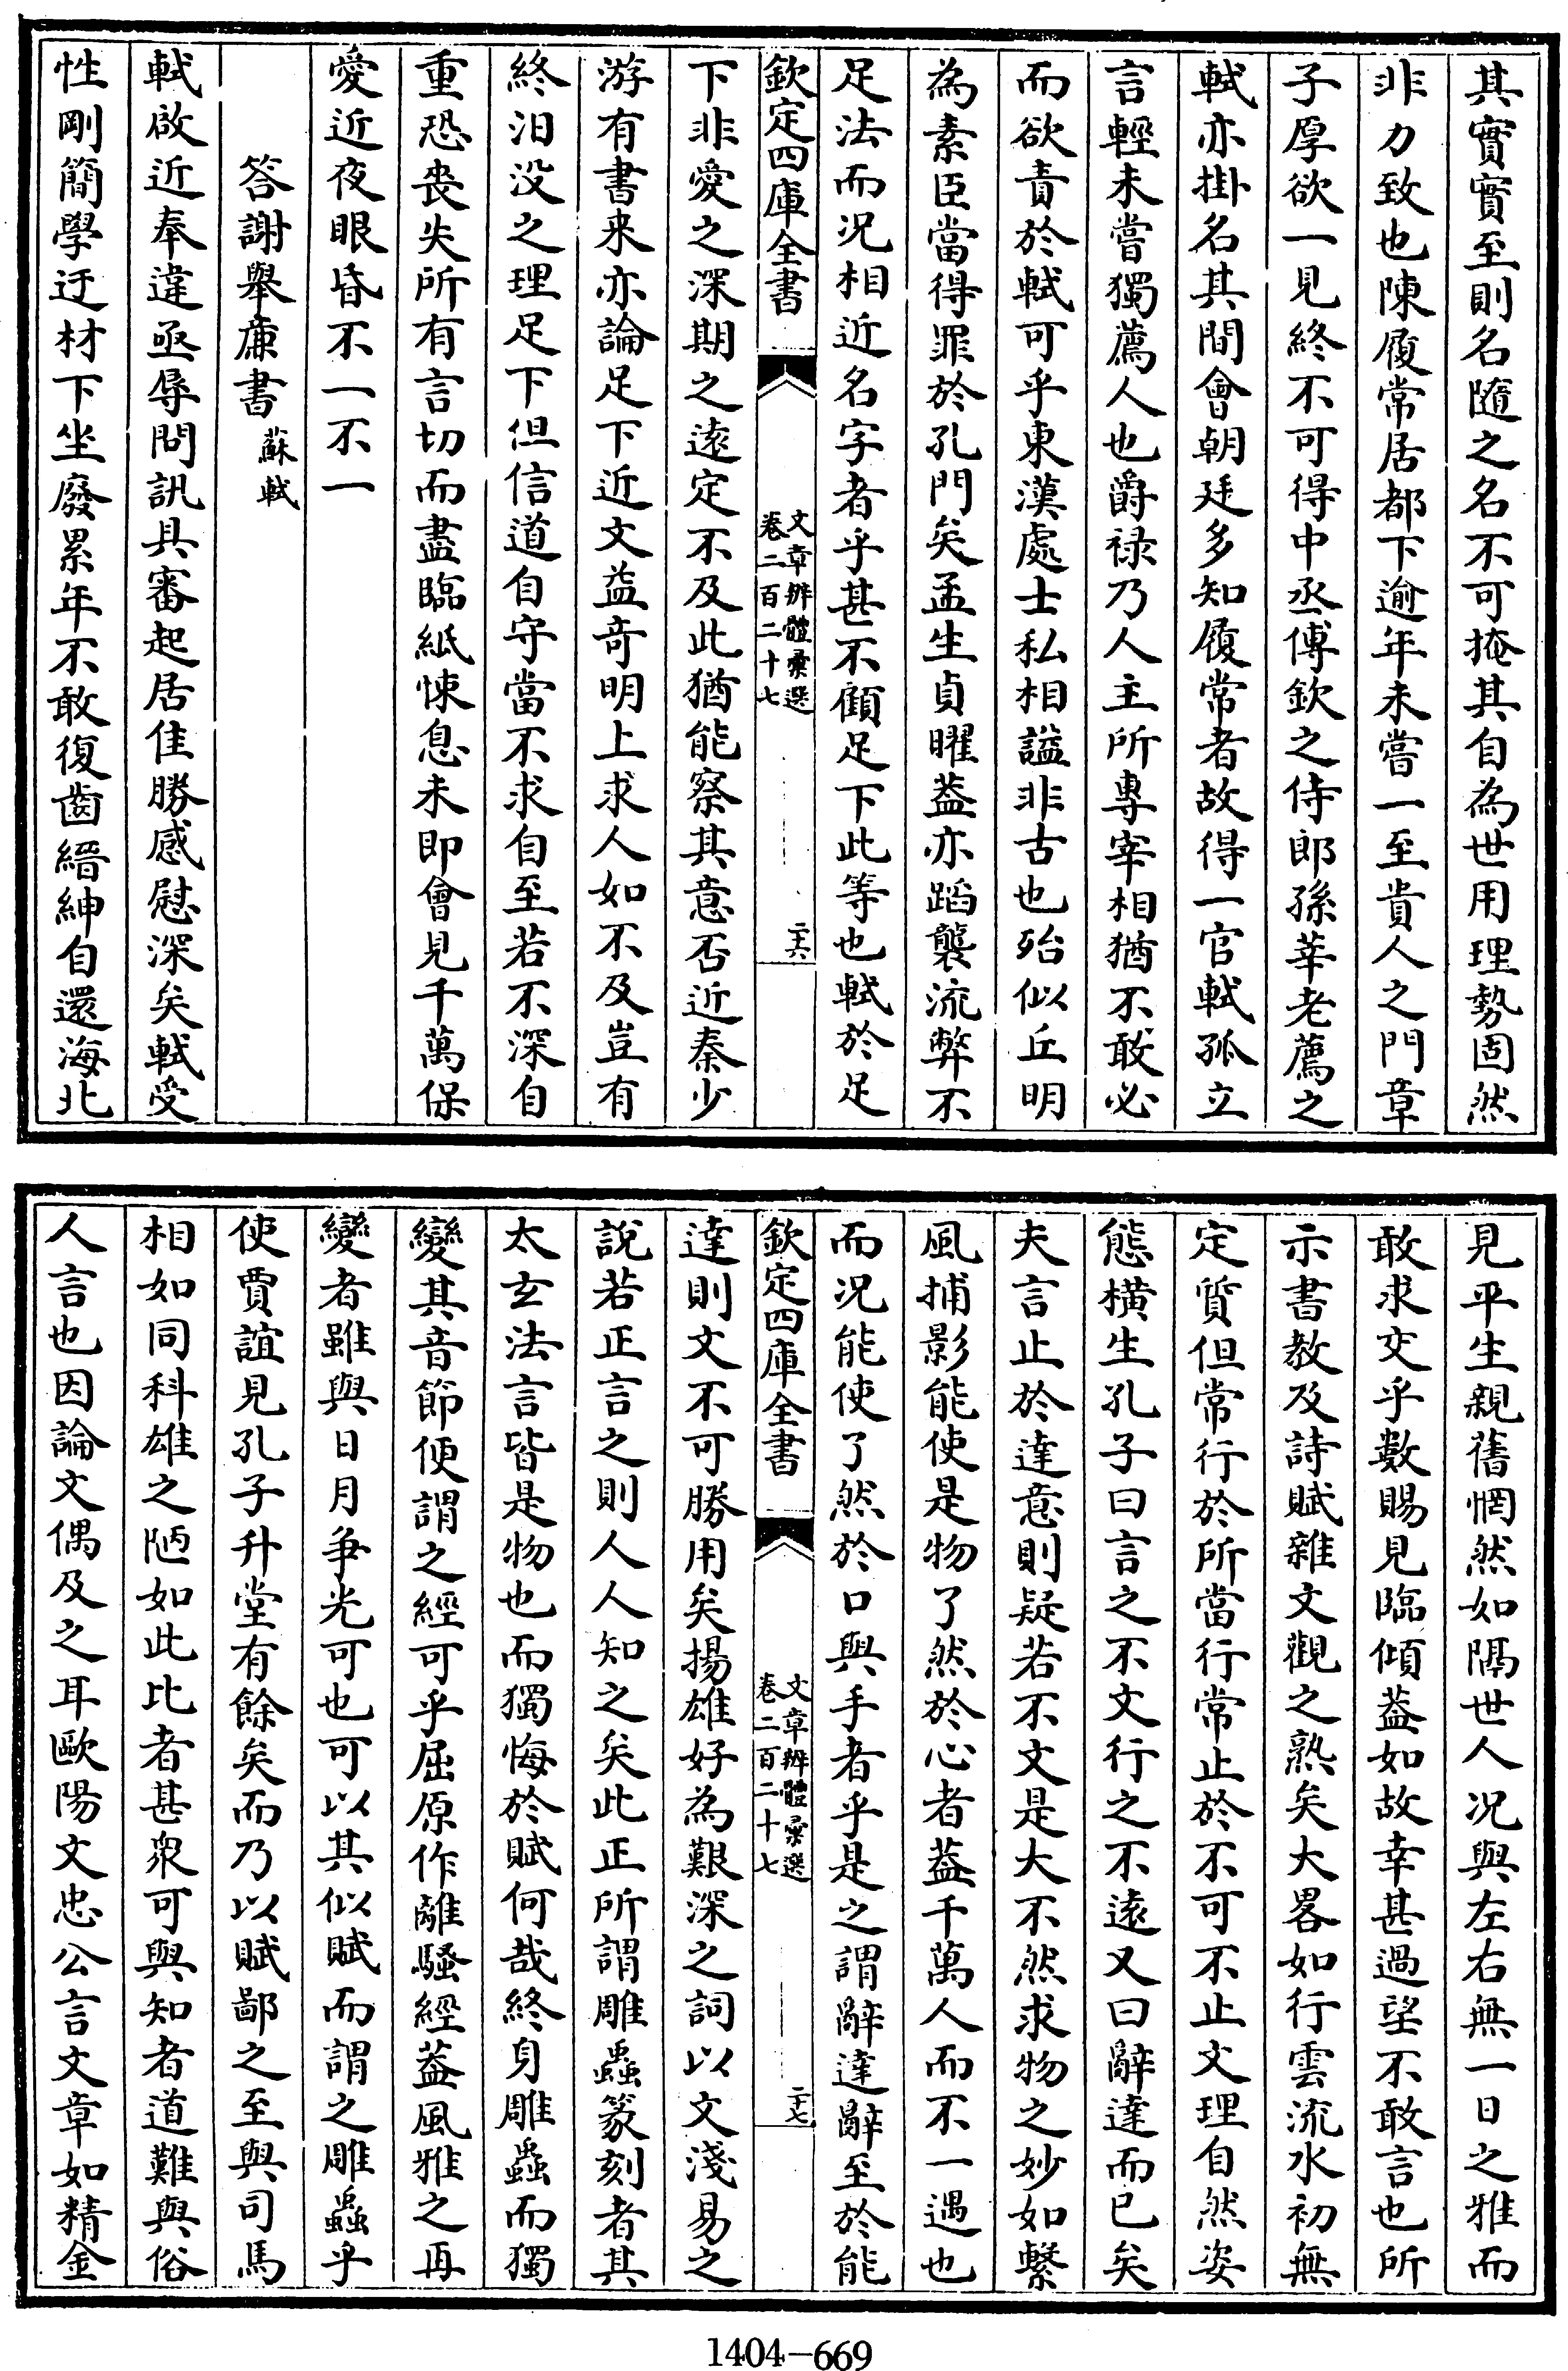 其實實至則名隨之名不可掩其自為世用理勢固然
非力致也陳履常居都下逾年未嘗一至貴人之門章
子厚欲一見終不可得中丞傅欽之侍郎孫莘老薦之
軾亦掛名其間會朝廷多知履常者故得一官軾孤立
言輕未嘗獨薦人也爵禄乃人主所專宰相猶不敢必
而欲責於軾可乎東漢處士私相謚非古也殆似丘明
為素臣當得罪於孔門矣孟生貞曜葢亦蹈襲流弊不
足法而况相近名字者乎甚不願足下此等也軾於足
欽定四庫全書
文章辨體彚選
卷二百二十七
二十六
下非愛之深期之遠定不及此猶能察其意否近秦少
游有書来亦論足下近文益奇明上求人如不及豈有
終汨没之理足下但信道自守當不求自至若不深自
重恐喪失所有言切而盡臨紙悚息未即會見千萬保
愛近夜眼昏不一不一
答謝舉廉書 蘇軾
軾啟近奉違亟辱問訊具審起居佳勝感慰深矣軾受
性剛簡學迂材下坐廢累年不敢復齒縉紳自還海北
見平生親舊惘然如隔世人况與左右無一日之雅而
敢求交乎數賜見臨傾葢如故幸甚過望不敢言也所
示書教及詩賦雜文觀之熟矣大畧如行雲流水初無
定質但常行於所當行常止於不可不止文理自然姿
態橫生孔子曰言之不文行之不遠又曰辭達而已矣
夫言止於達意則疑若不文是大不然求物之妙如繫
風捕影能使是物了然於心者葢千萬人而不一遇也
而况能使了然於口與手者乎是之謂辭達辭至於能
欽定四庫全書
文章辨體彚選
卷二百二十七
二十七
達則文不可勝用矣揚雄好為艱深之詞以文淺易之
說若正言之則人人知之矣此正所謂雕蟲篆刻者其
太玄法言皆是物也而獨悔於賦何哉終身雕蟲而獨
變其音節便謂之經可乎屈原作離騷經葢風雅之再
變者雖與日月争光可也可以其似賦而謂之雕蟲乎
使賈誼見孔子升堂有餘矣而乃以賦鄙之至與司馬
相如同科雄之陋如此比者甚衆可與知者道難與俗
人言也因論文偶及之耳歐陽文忠公言文章如精金
1404-669